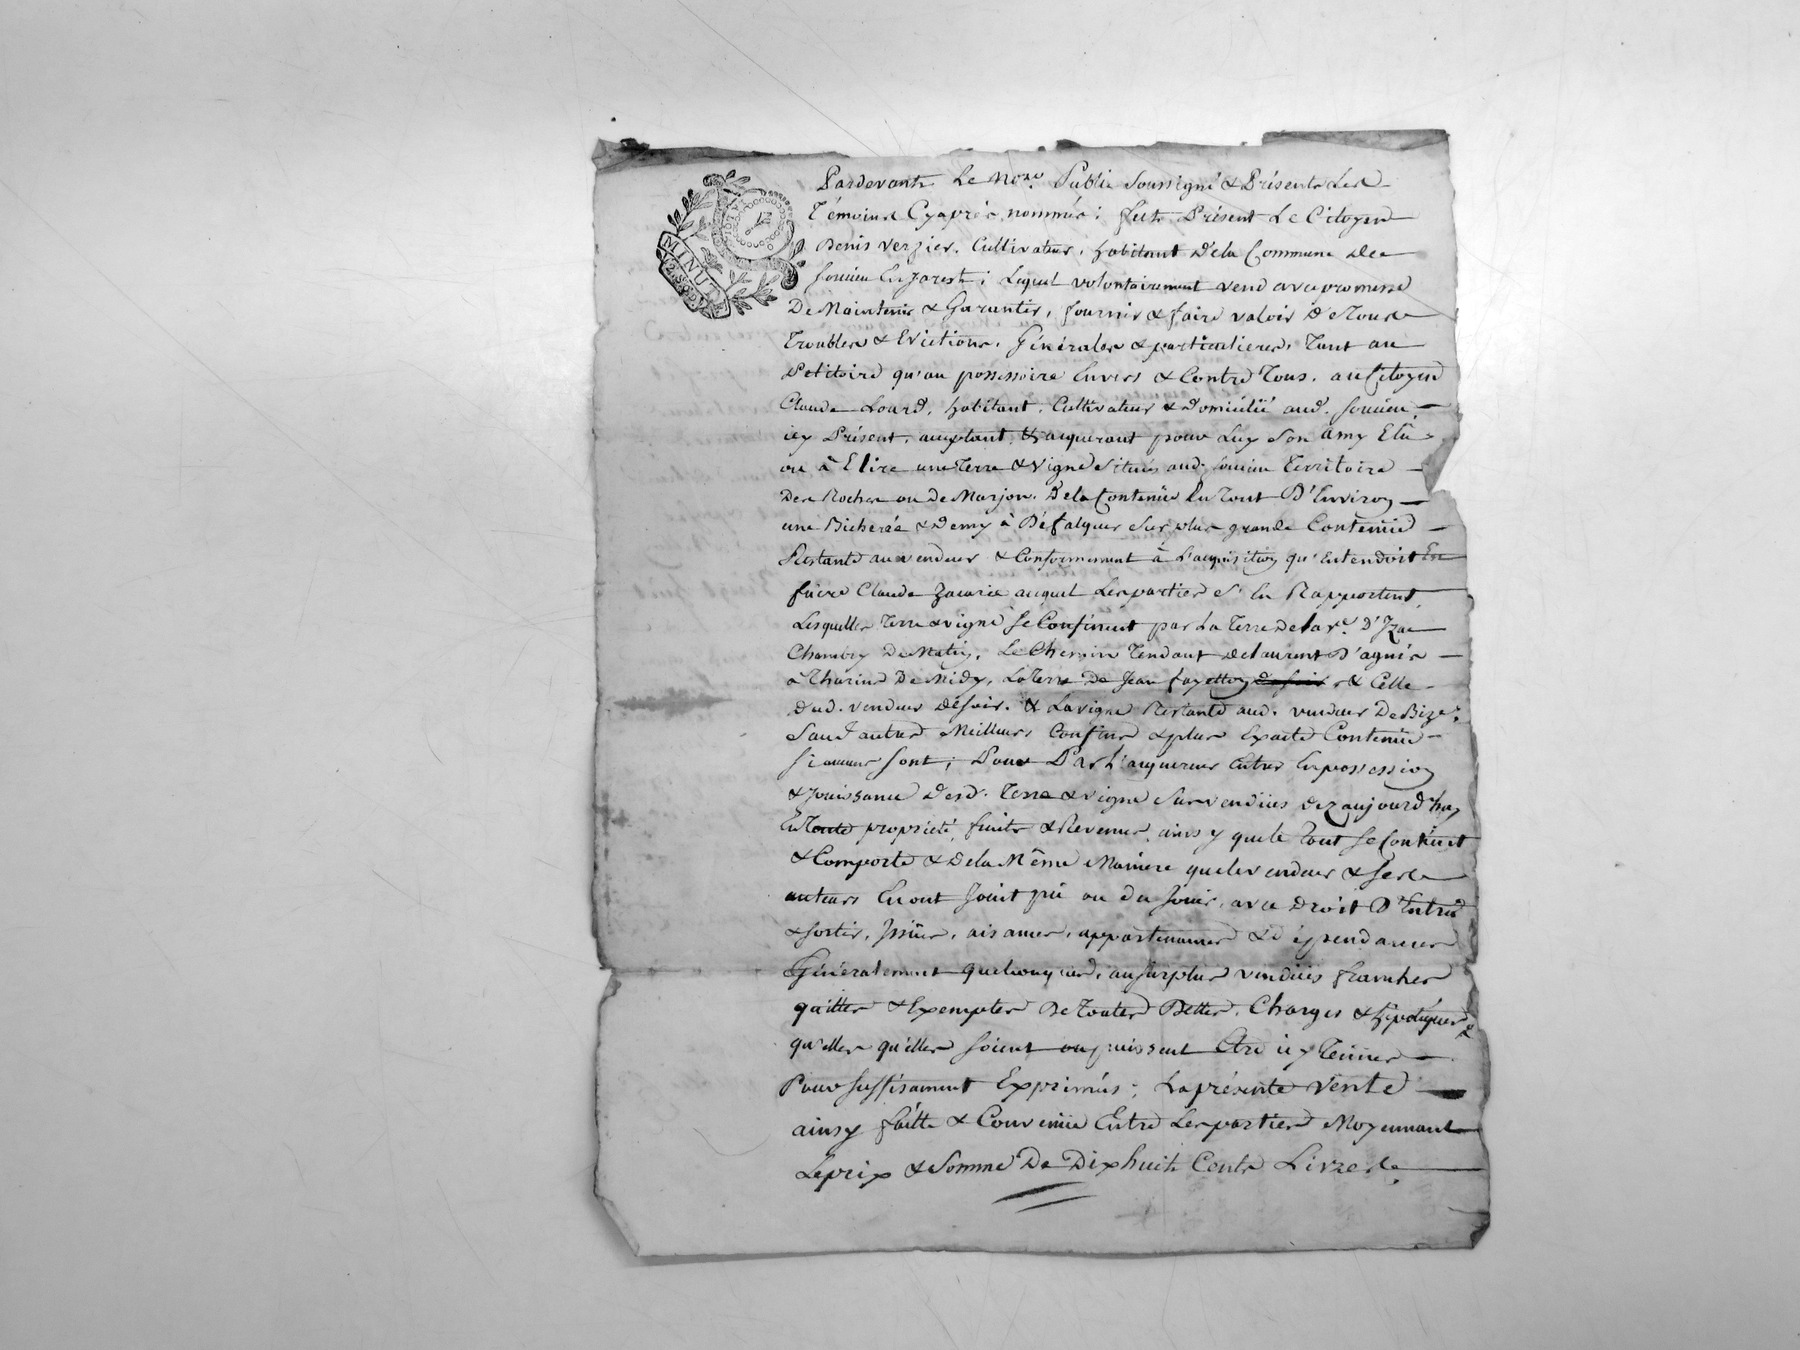 LA LOI
MINUTE
12. S. 6. D.
Pardevant Le No.re Public Soussigné & Présents Les
Témoins Cyaprès nommés; fut Présent Le Citoyen
Denis Verzier, Cultivateur, habitant De la Commune De
Soucieu En Jarest; Lequel volontairement vend avec promesse
De Maintenir & Garantir, fournir & faire valoir De Tous
Troubles & Evictions, Générales & particulieres, Tant au
Petitoire qu'au possessoire Envers & Contre Tous, au Citoyen
Claude Lourd, habitant, Cultivateur & Domicilié aud. Soucieu,
icy Présent, acceptant & acquerant pour Luy Son amy Elû
ou à Elire une Terre & vigne Situés aud. Soucieu Territoire
Des Roches ou De Marjon, De la Contenüe En Tout D'Environ
une Bicherée & Demy à Défalquer Sur plus grande Contenüe
Restante au vendeur & Conformement à L'acquisition qu'Entendoit En
faire Claude Zacarie auquel Les parties S'En Rapportent,
Lesquelles Terre & vigne Se Confinent par La Terre De la v.e D'Izac
De Matin, Le Chemin Tendant De Laurent D'agnis
à De Midy, La Terre De Jean fayetton & Celle
dud. vendeur De soir, & La vigne Restante aud. vendeur De Bize,
Sauf autres Meilleurs Confins & plus Exacte Contenüe
Si aucuns Sont; Pour Par L'acquereur Entrer En possession
& Jouissance Desd. Terre & vigne Sus vendües Dez aujourd'huy
En Toute propriété, fruits & Revenus, ainsy que le Tout Se Contient
& Comporte & De la Même Maniere que le vendeur & Ses
auteurs En ont Joüit pû ou du Jouir, avec Droit D'Entrée
& Sortie, Issües, aisances, appartenances & dépendances
Généralement quelconques, au Surplus vendües franches
quittes & Exemptes De Toutes Dettes, Charges & hypotéques
qu'elles qu'elles Soient ou puissent Etre icy Tenües
Pour Suffisamment Exprimés; La présente Vente
ainsy faitte & Convenüe Entre Les parties Moyennant
Le prix & Somme De Dix huit Cents Livres